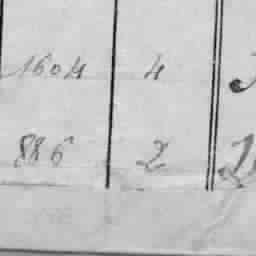 1604 4
886 2 2